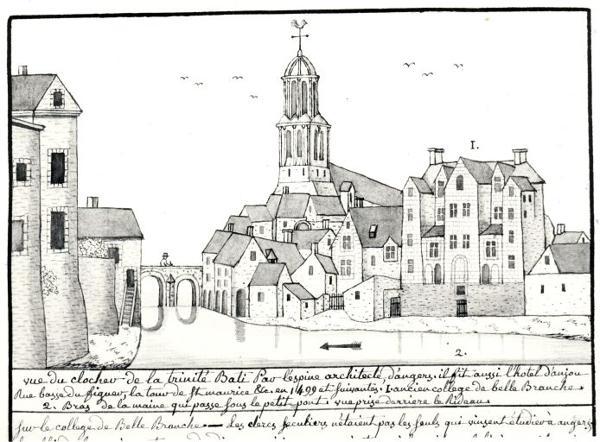 I.
2.
vue du clocher de la trinité Bati Par l'espine architecte d'angers. il fit aussi l'hotel d'anjou
Rue basse du figuier, la tour de St. maurice &c. en 1499 et suivantes. 1. ancien college de belle Branche.
2. Bras de la maine qui passe sous le petit pont; vue prise derriere le Rideau.
sur le college de Belle Branche — les clercs seculiers n'étaient pas les seuls qui vinsent étudier a angers